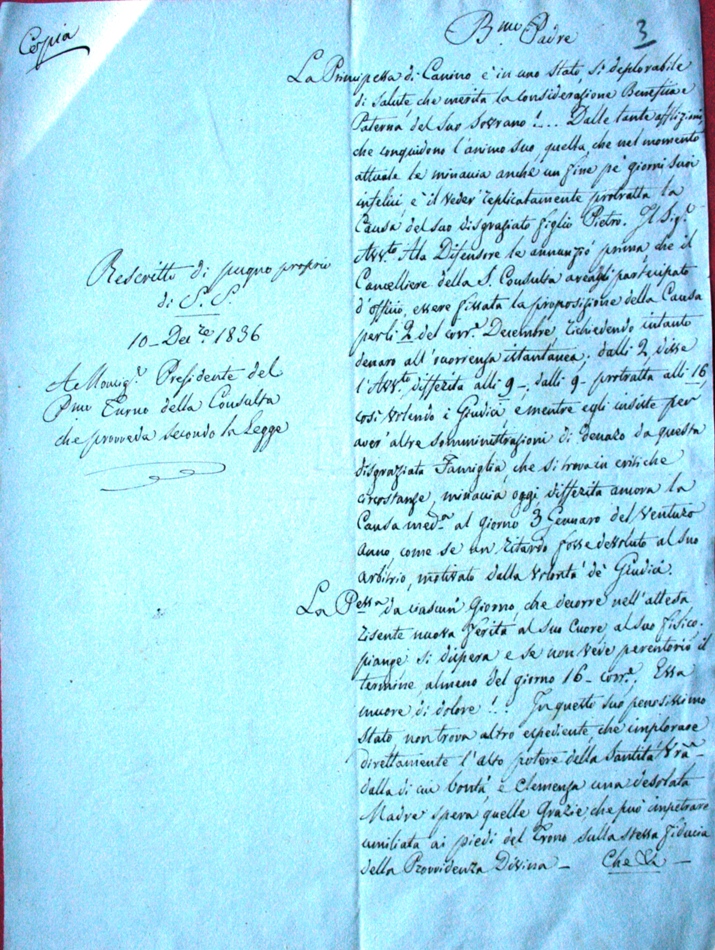 Copia
3
B.mo Padre
La Principessa di Canino è in uno stato, si deplorabile
di salute che merita la considerazione Benefica e
Paterna del suo Sovrano!... Dalle tante afflizioni
che conquidono l'animo suo, quella che nel momento
attuale le minaccia anche un fine pe' giorni suoi
infelici è il veder replicatamente protratta la
Causa del suo disgraziato figlio Pietro. Il Sig.r
Avv.to Ala Difensore le annunziò prima che il
Cancelliere della S. Consulta aveagli participato
d'officio, essere fissata la proposizione della Causa
per li 2 del corr.e Decembre, richiedendo intanto
denaro all'occorrenza istantanea; dalli 2 disse
l'Avv.to differita alli 9-, dalli 9- protratta alli 16,
così volendo i Giudici e mentre egli insiste per
aver' altre somministrazioni di denaro da questa
disgraziata Famiglia, che si trova in critiche
circostanze, minaccia oggi differita ancora la
Causa med.a al giorno 3 Gennaro del venturo
Anno, come se un ritardo fosse devoluto al suo
arbitrio, motivato dalla volontà de' Giudici.
La P.essa da ciascun Giorno che decorre nell'attesa
risente nuova ferita al suo Cuore al suo fisico.
piange si dispera e se non vede perentorio il
termine almeno del giorno 16- corr.e. Essa
muore di dolore!.. In questo suo penosissimo
Stato non trova altro espediente che implorare
direttamente l'alto potere della Santità V.ra
dalla di cui bontà e clemenza una desolata
Madre spera quelle Grazie, che può impetrare
umiliata ai piedi del Trono sulla stessa fiducia
della Provvidenza Divina - Che &. -
Rescritto di pugno proprio
di S. S.
10- Dec.re 1836
A Monsig.r Presidente del
P.mo Turno della Consulta
che provveda secondo la Legge